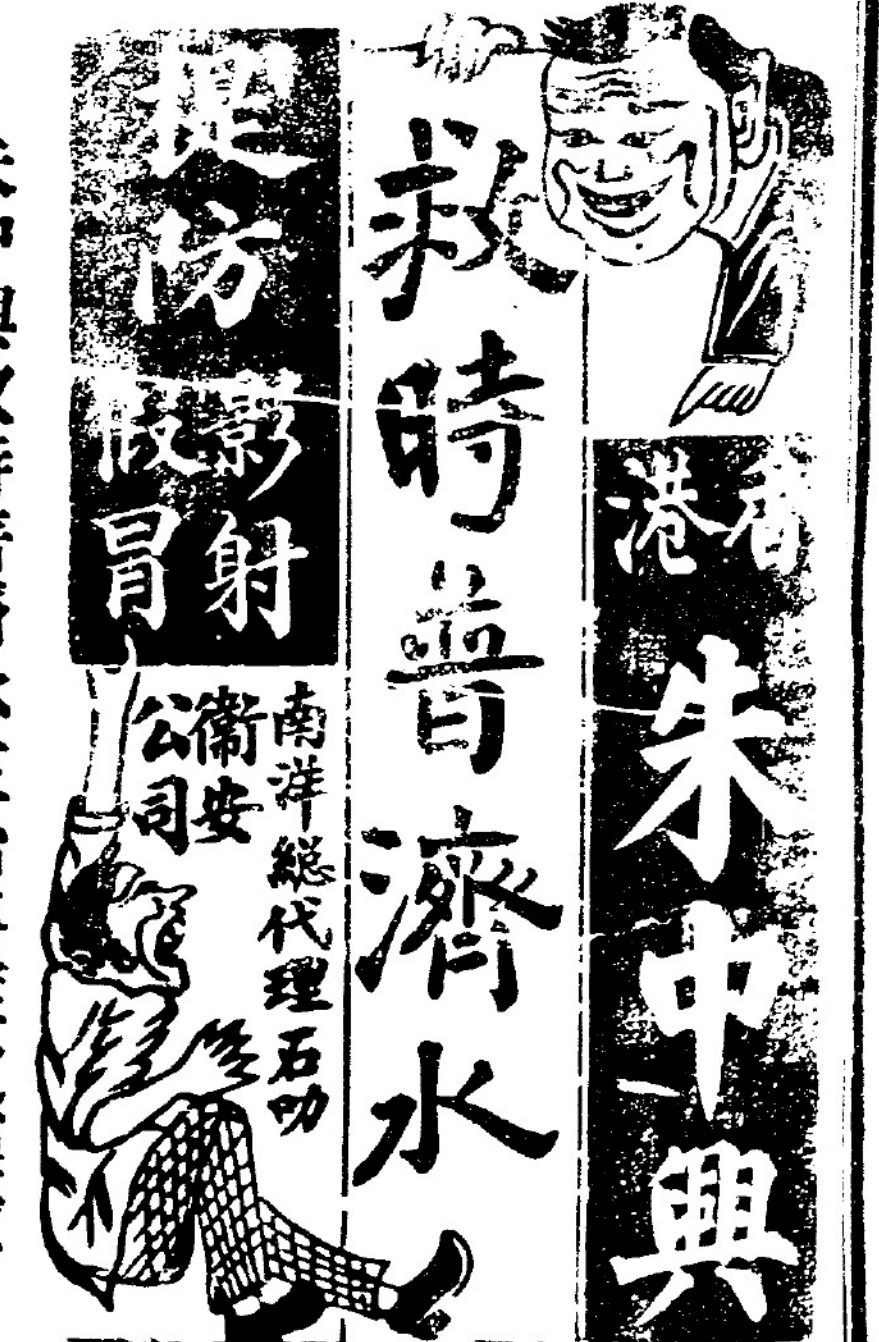 香港
朱中興
救時普濟水
提防
影射
假冒
南洋総代理石叻
衛安
公司